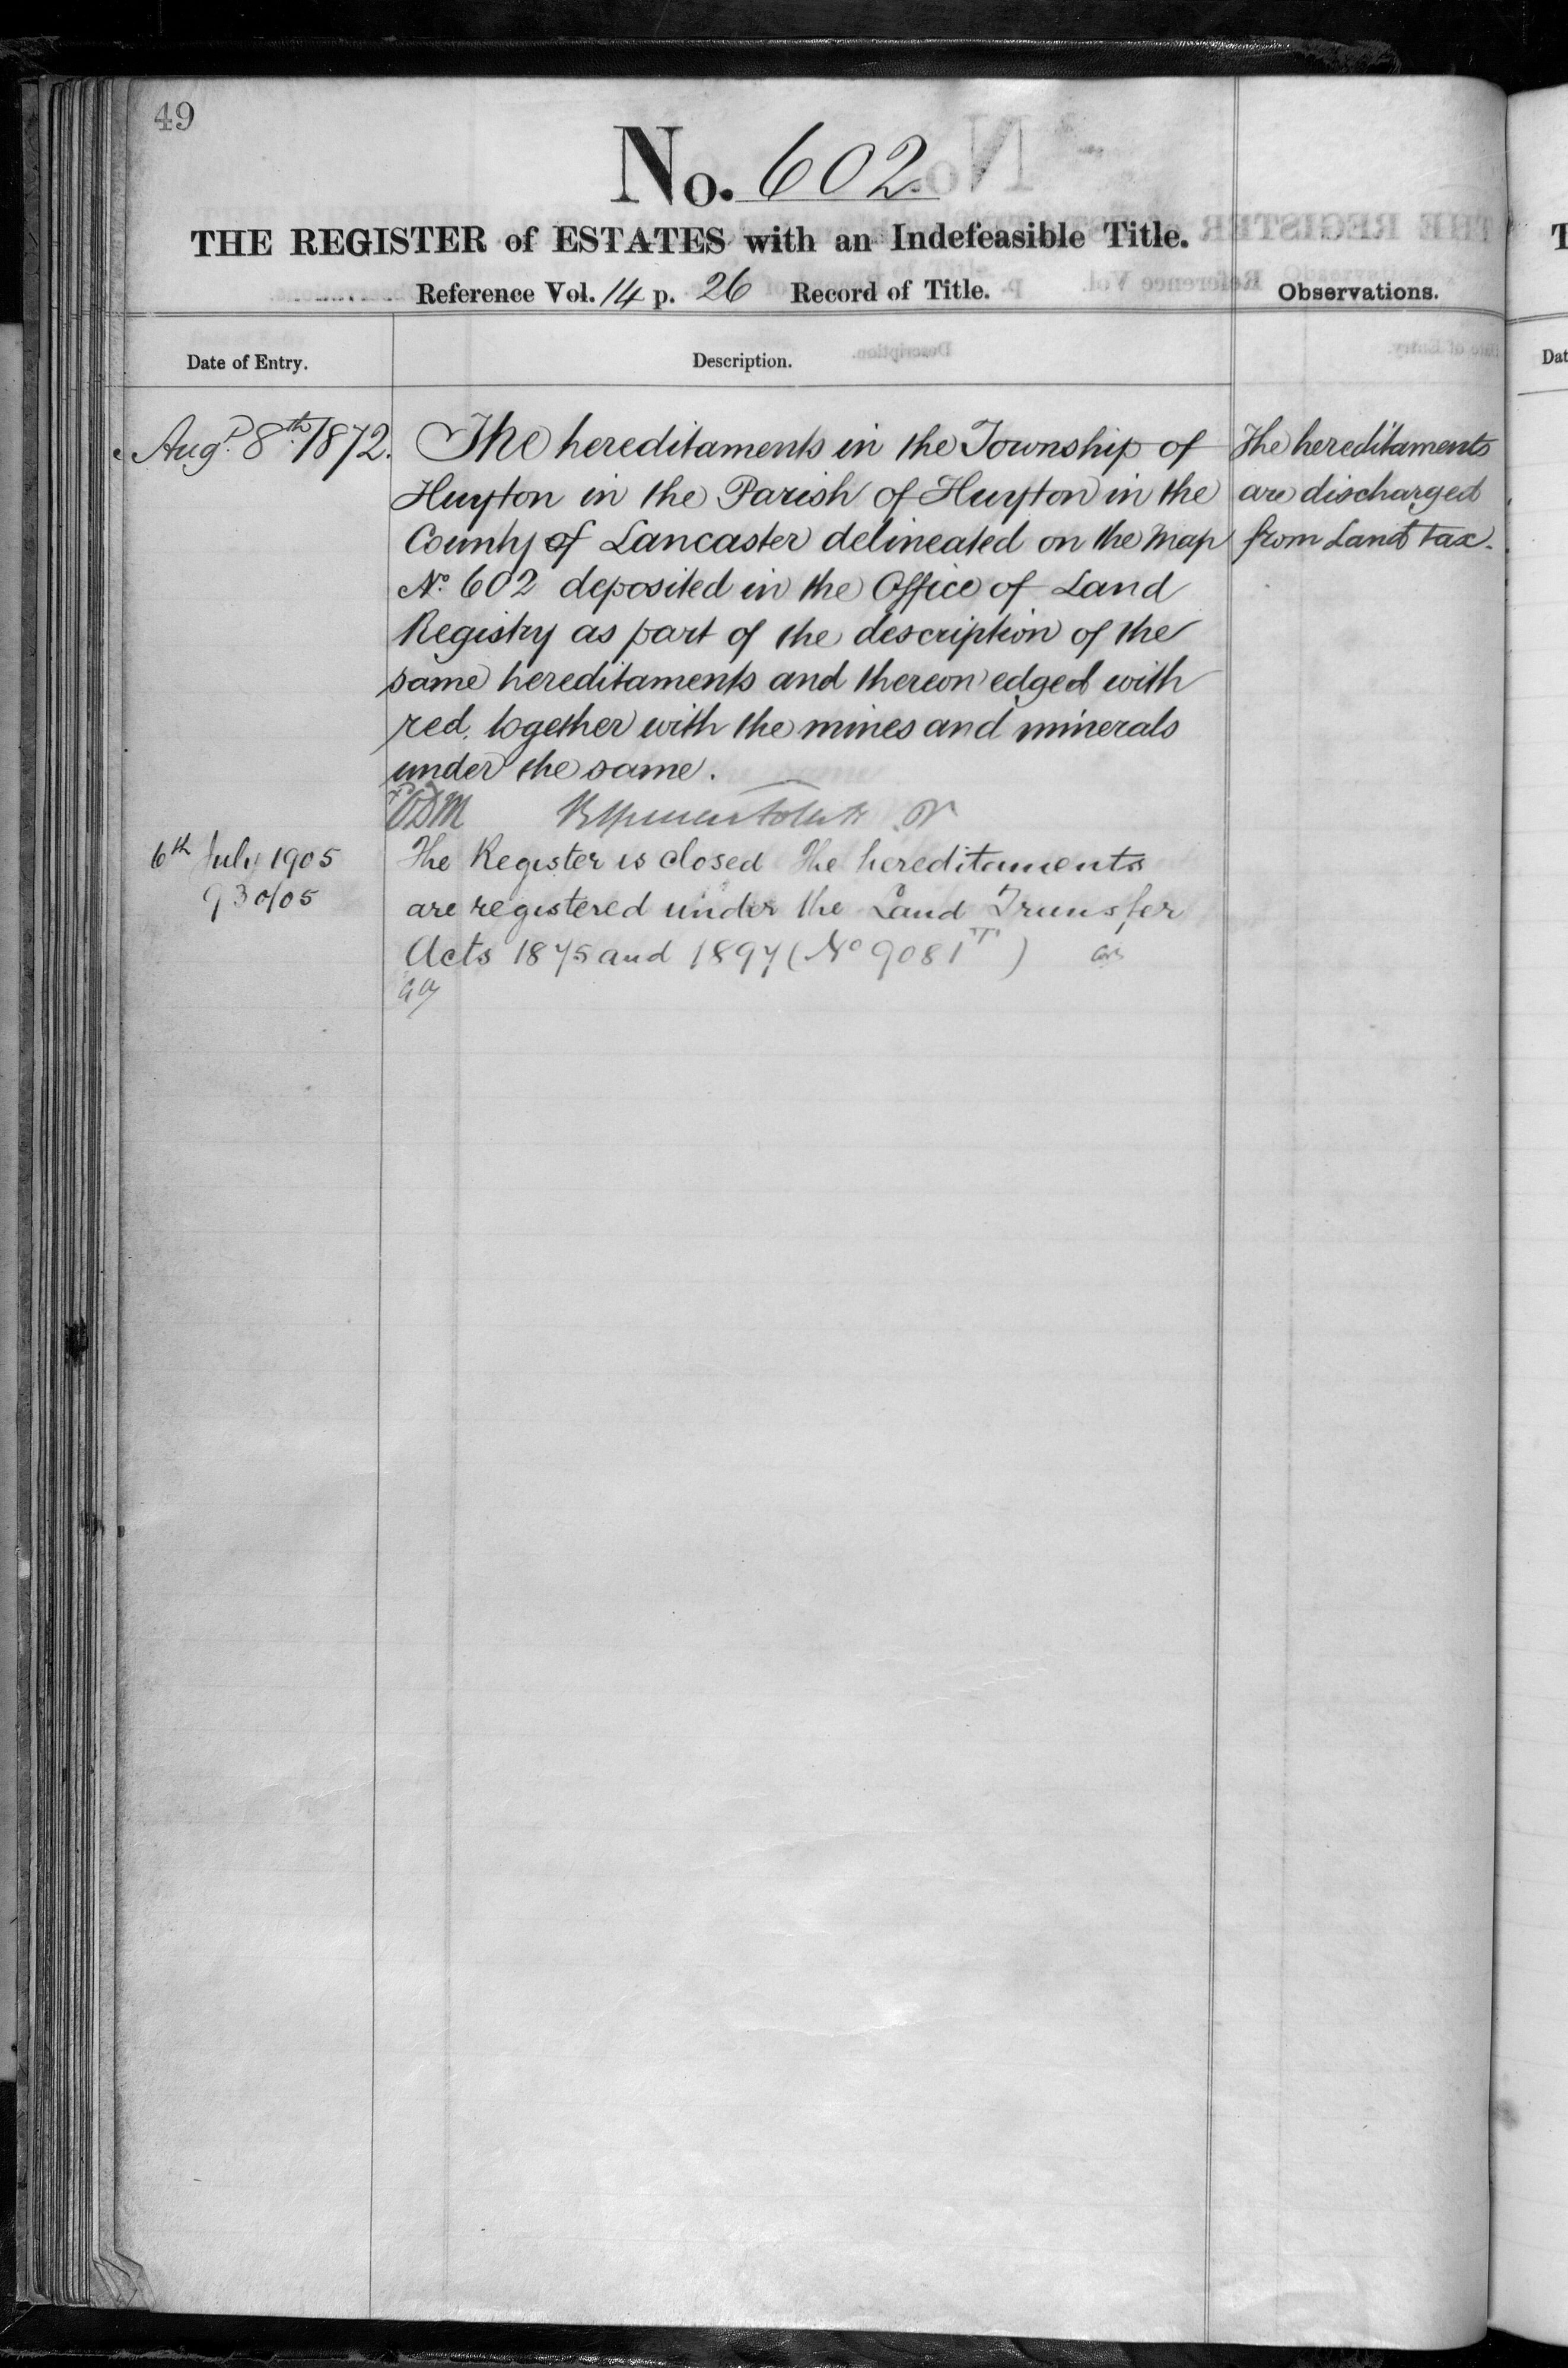 49
No. 602
THE REGISTER of ESTATES with an Indefeasible Title.
Reference Vol. 14 p. 26 Record of Title.
Observations.
Date of Entry.
Description.
Augt. 8th. 1872.
The hereditaments in the Township of
Huyton in the Parish of Huyton in the
County of Lancaster delineated on the Map
No. 602 deposited in the Office of Land
Registry as part of the description of the
same hereditaments and thereon edged with
red, together with the mines and minerals
under the same.
The hereditaments
are discharged
from Land tax.
6th July 1905
930/05
The Register is closed The hereditaments
are registered under the Land Transfer
Acts 1875 and 1897 (No 9081 T)